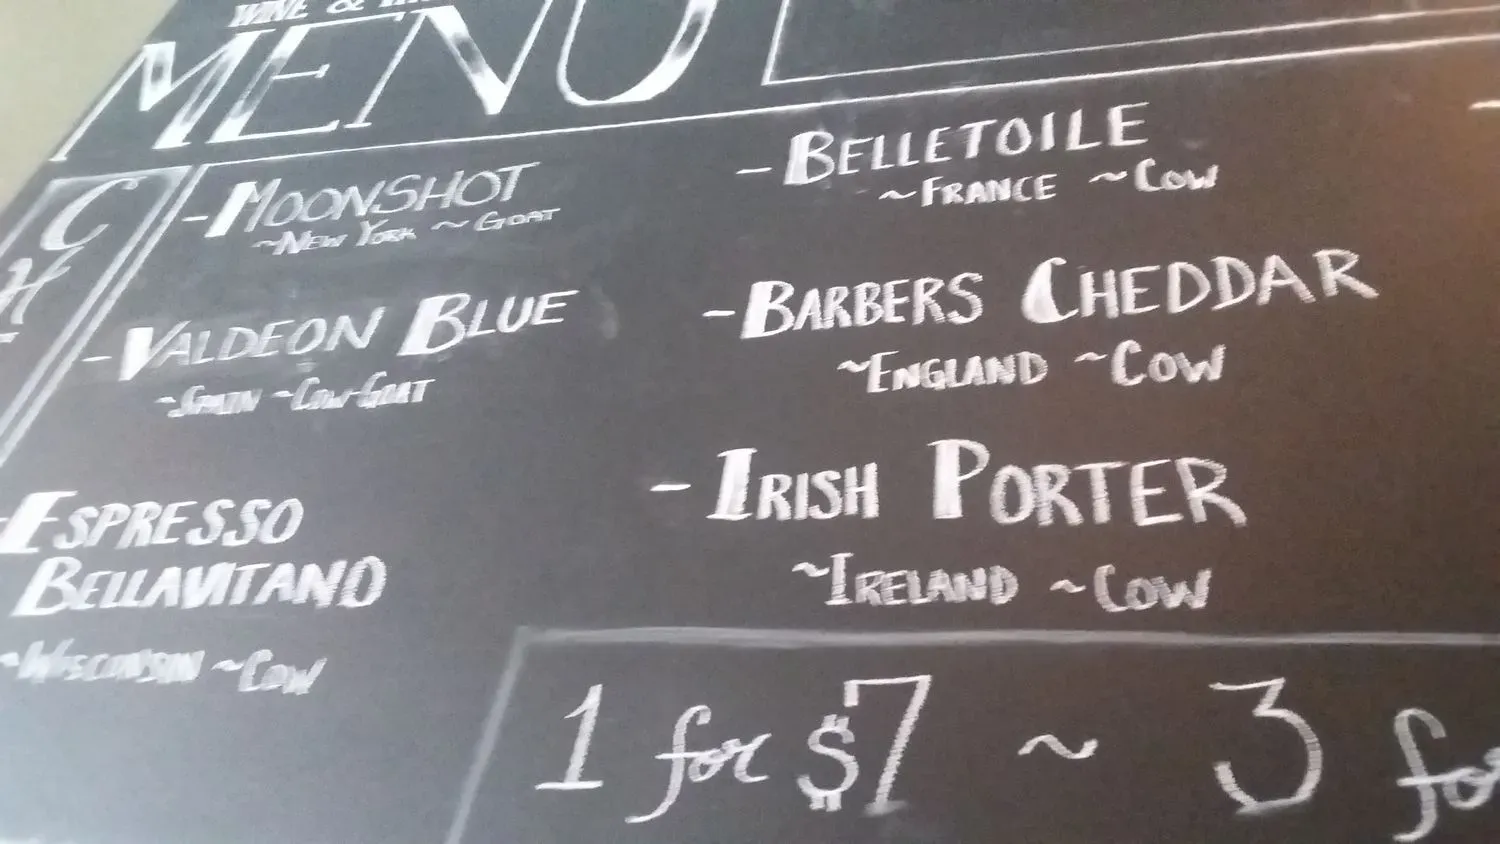 WINE &
MENU
CH
- MOONSHOT
~NEW YORK ~GOAT
- VALDEON BLUE
~SPAIN ~COW-GOAT
- ESPRESSO
BELLAVITANO
~WISCONSIN ~COW
- BELLETOILE
~FRANCE ~COW
- BARBERS CHEDDAR
~ENGLAND ~COW
- IRISH PORTER
~IRELAND ~COW
1 for $7 ~ 3 for